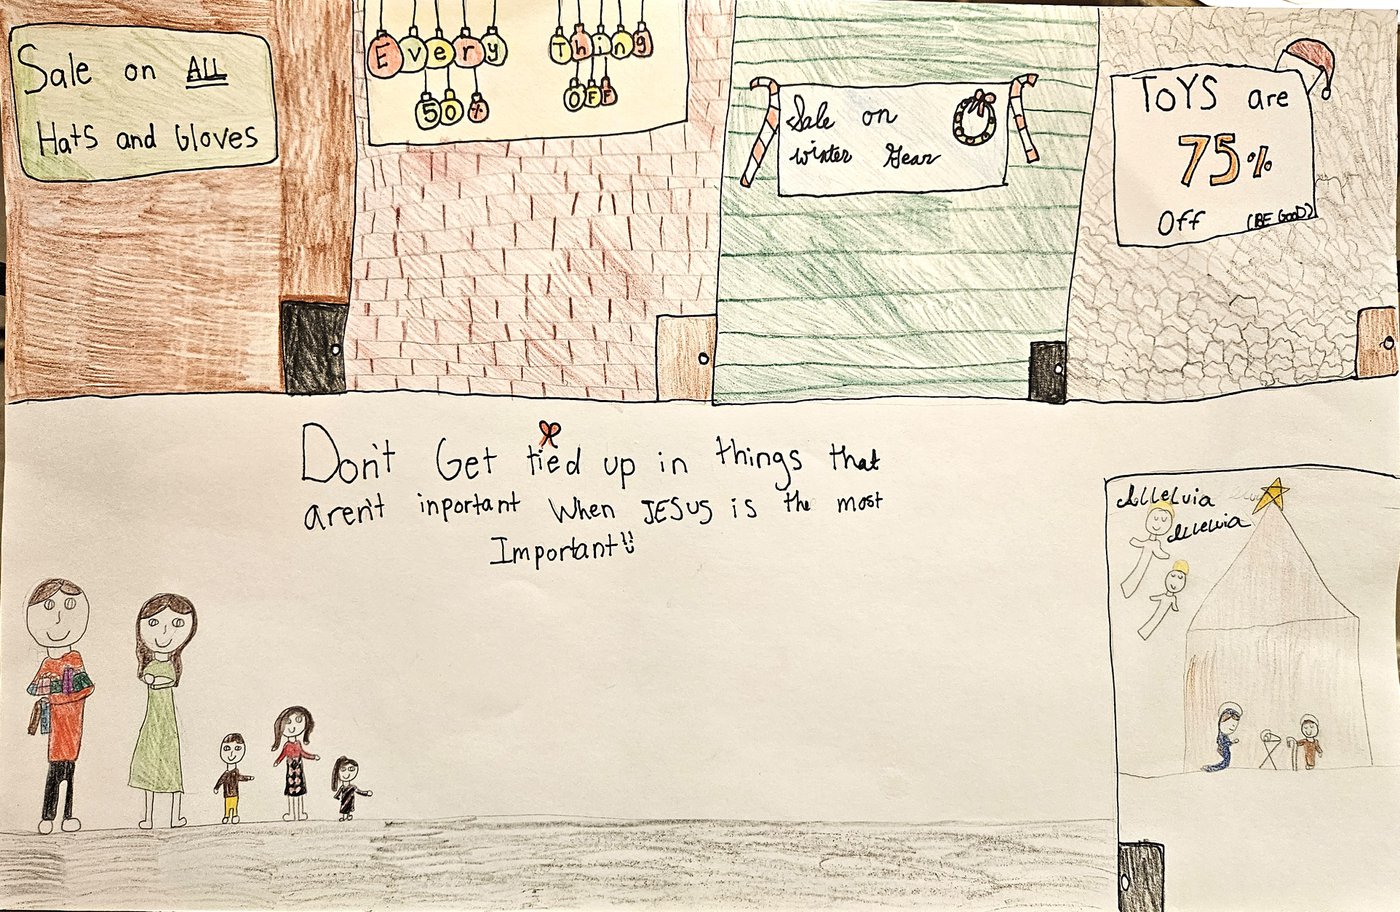 Sale on ALL
Hats and Gloves
Every Thing
50% OFF
Sale on
Winter Gear
TOYS are
75%
Off (BE GOOD)
Don't Get tied up in things that
aren't inportant When JESUS is the most
Important
Alleluia
Alleluia